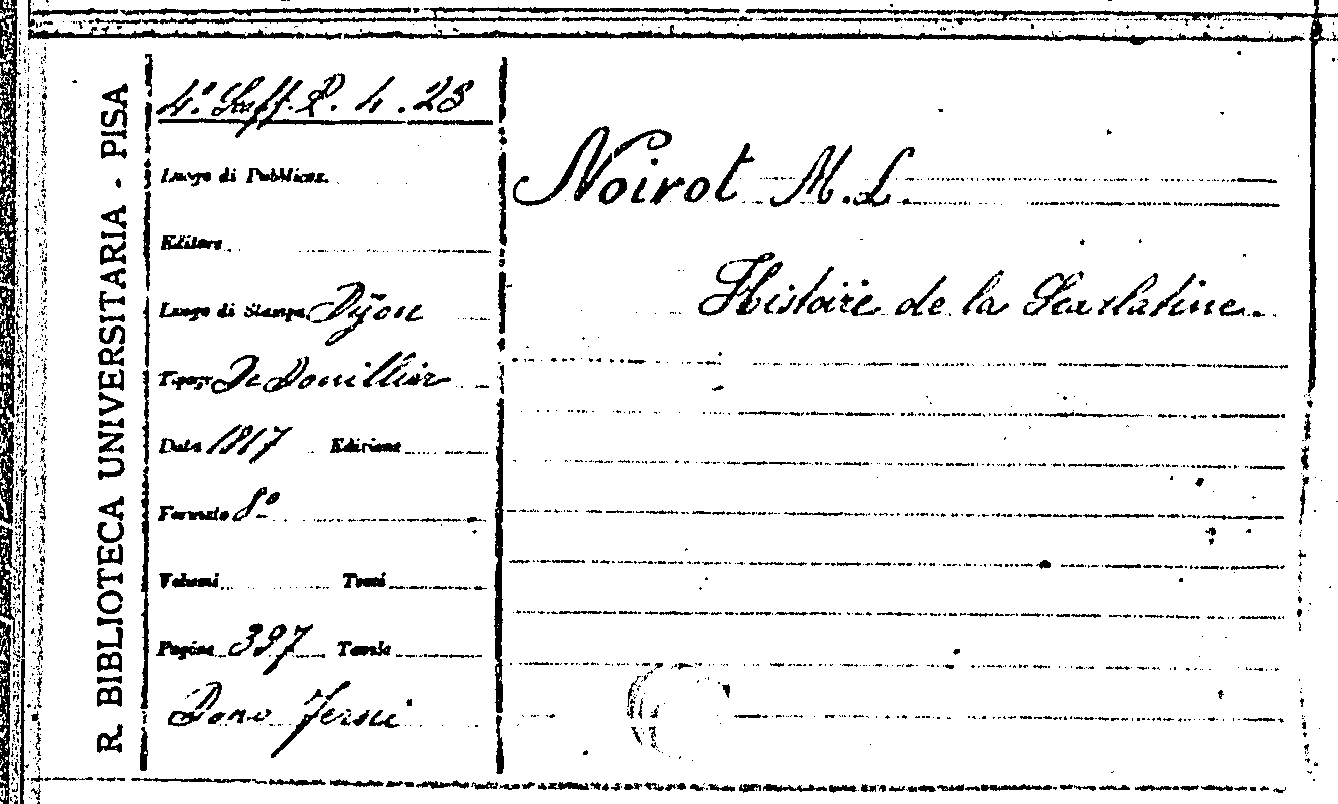 R. BIBLIOTECA UNIVERSITARIA - PISA
4.° Suff. 2. 4. 23
Luogo di Pubblicaz.
Editore
Luogo di Stampa Dijon
Tipogr. De Douillier
Data 1817 Edizione
Formato 8°
Volumi Tomi
Pagine 397 Tavole
Dono
Noirot M. L.
Histoire de la Scarlatine